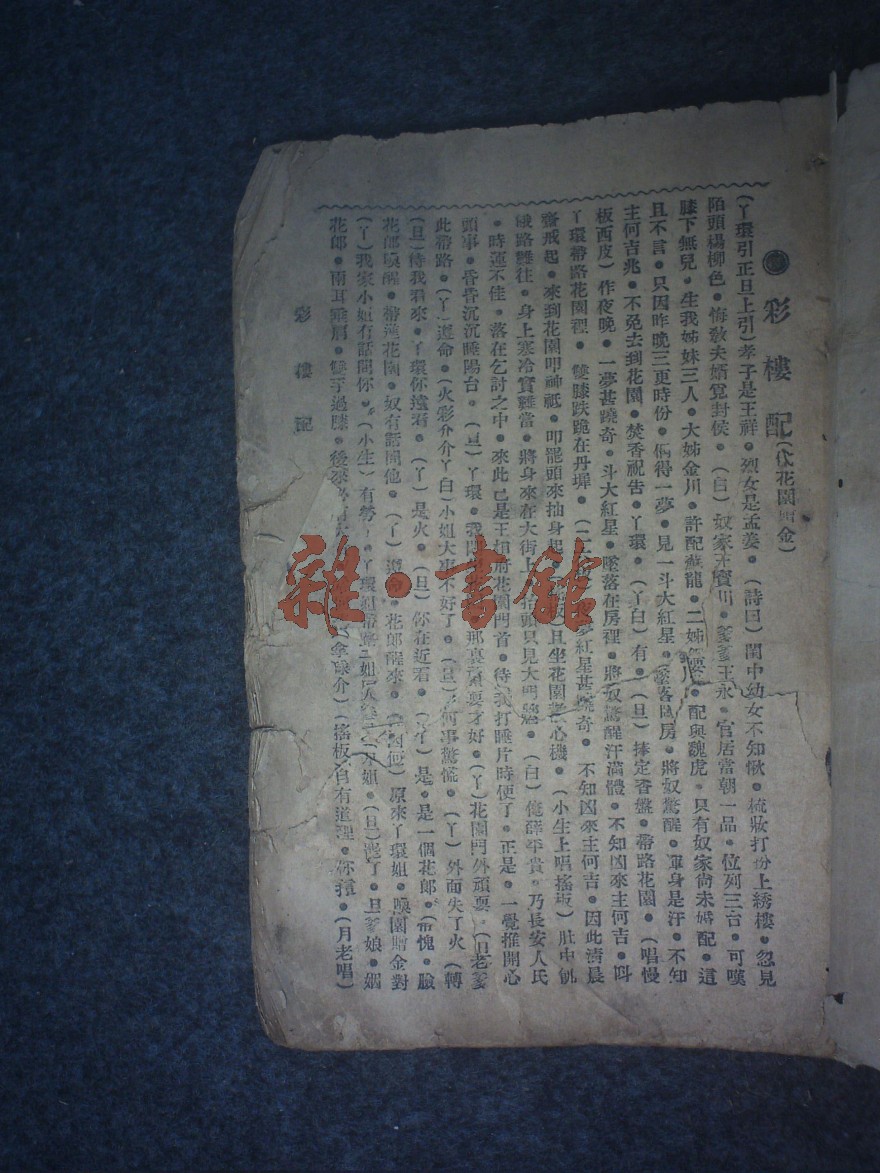 彩樓配(代花園贈金)
(丫環引正旦上引)孝子是王祥•烈女是孟姜•(詩曰)閨中幼女不知愀•梳妝打扮上綉樓•忽見
陌頭楊柳色•悔敎夫婿覓封侯•(白)奴家王寶川•爹爹王永•官居當朝一品•位列三台•可嘆
膝下無兒•生我姊妹三人•大姊金川•許配蘇龍•二姊配與魏虎•只有奴家尙未婚配•這
且不言•只因昨晚三更時份•偶得一夢•見一斗大紅星•墜落房•將奴驚醒•渾身是汗•不知
主何吉兆•不免去到花園•焚香祝告•丫環•(丫白)有•(旦)捧定香盤•帶路花園•(唱慢
板西皮)作夜晚•一夢甚蹺奇•斗大紅星•墜落在房裡•將奴驚醒汗滿體•不知凶來主何吉•叫
丫環帶路花園裡•雙膝跌跪在丹墀•(二夢紅星甚蹺奇•不知凶來主何吉•因此淸晨
齋戒起•來到花園叩神祇•叩罷頭來抽身起•且坐花園心機•(小生上唱搖板)肚中飢
餓路難往•身上寒冷實難當•將身來在大街上•抬頭只見大門•(白)俺薛平貴•乃長安人氏
•時運不佳•落在乞討之中•來此已是王相府花園門首•待我打睡片時便了•正是•一覺推開心
頭事•昏昏沉沉睡陽台•(旦)丫環•我那裏頑耍才好•(丫)花園門外頑耍•(旦)老爹
此帶路•(丫)遵命•(火彩介介丫白)小姐大事不好了•(旦)何事驚慌•(丫)外面失了火•(轉
(旦)待我看來•丫環你遠看•(丫)是火•(旦)你在近看•(丫)是•是一個花郎•(旦)愧•臉
花郎喚醒•帶進花園•奴有話問他•(丫)遵命•花郎醒來•原來丫環姐•嘆園贈金對
(丫)我家小姐有話問你•(小生)有勞•丫環姐帶路二姐•(旦)罷了•旦爹娘•姻
花郎•兩耳雖眉•雙手過膝•後(搖板)自有道理•你擅•(月老唱)
彩樓配
雜•書館